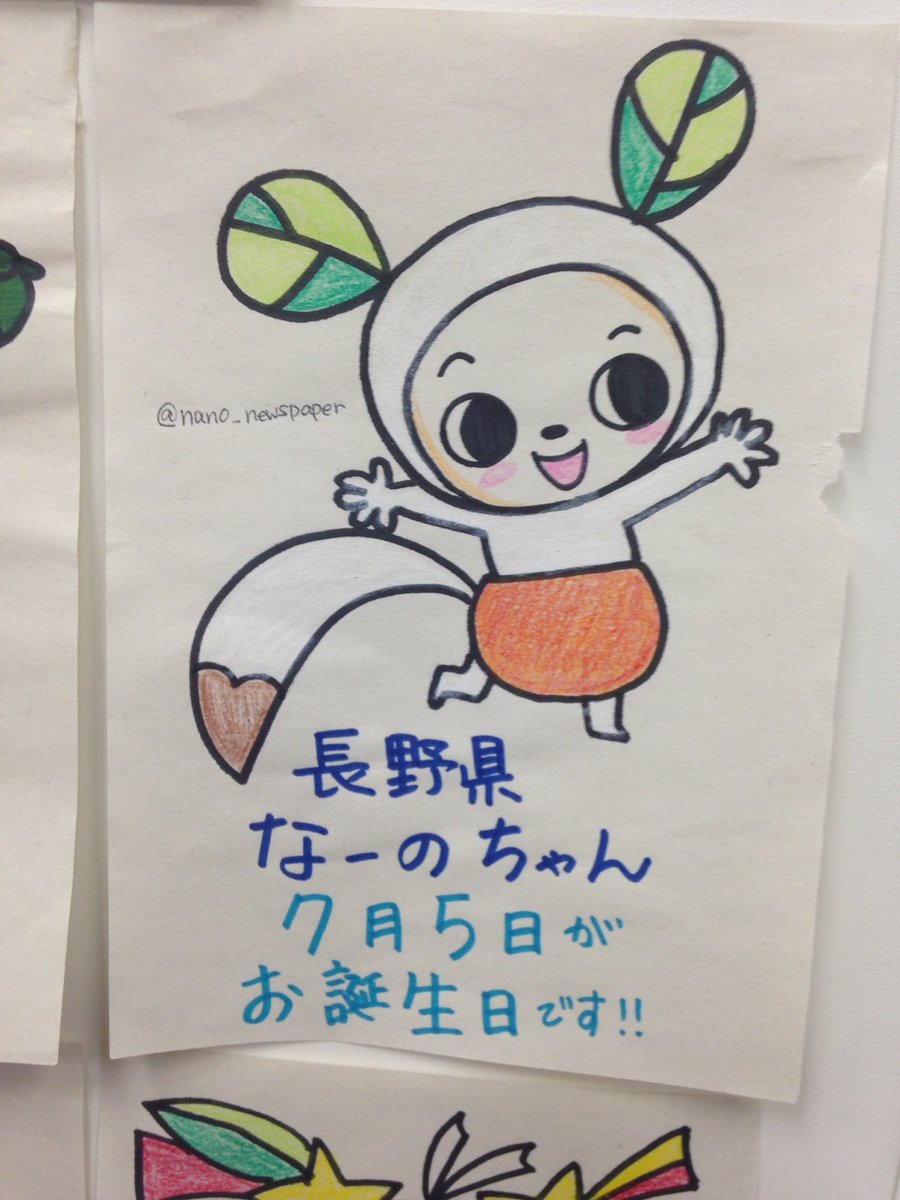 @nano_newspaper
長野県
なーのちゃん
7月5日が
お誕生日です!!